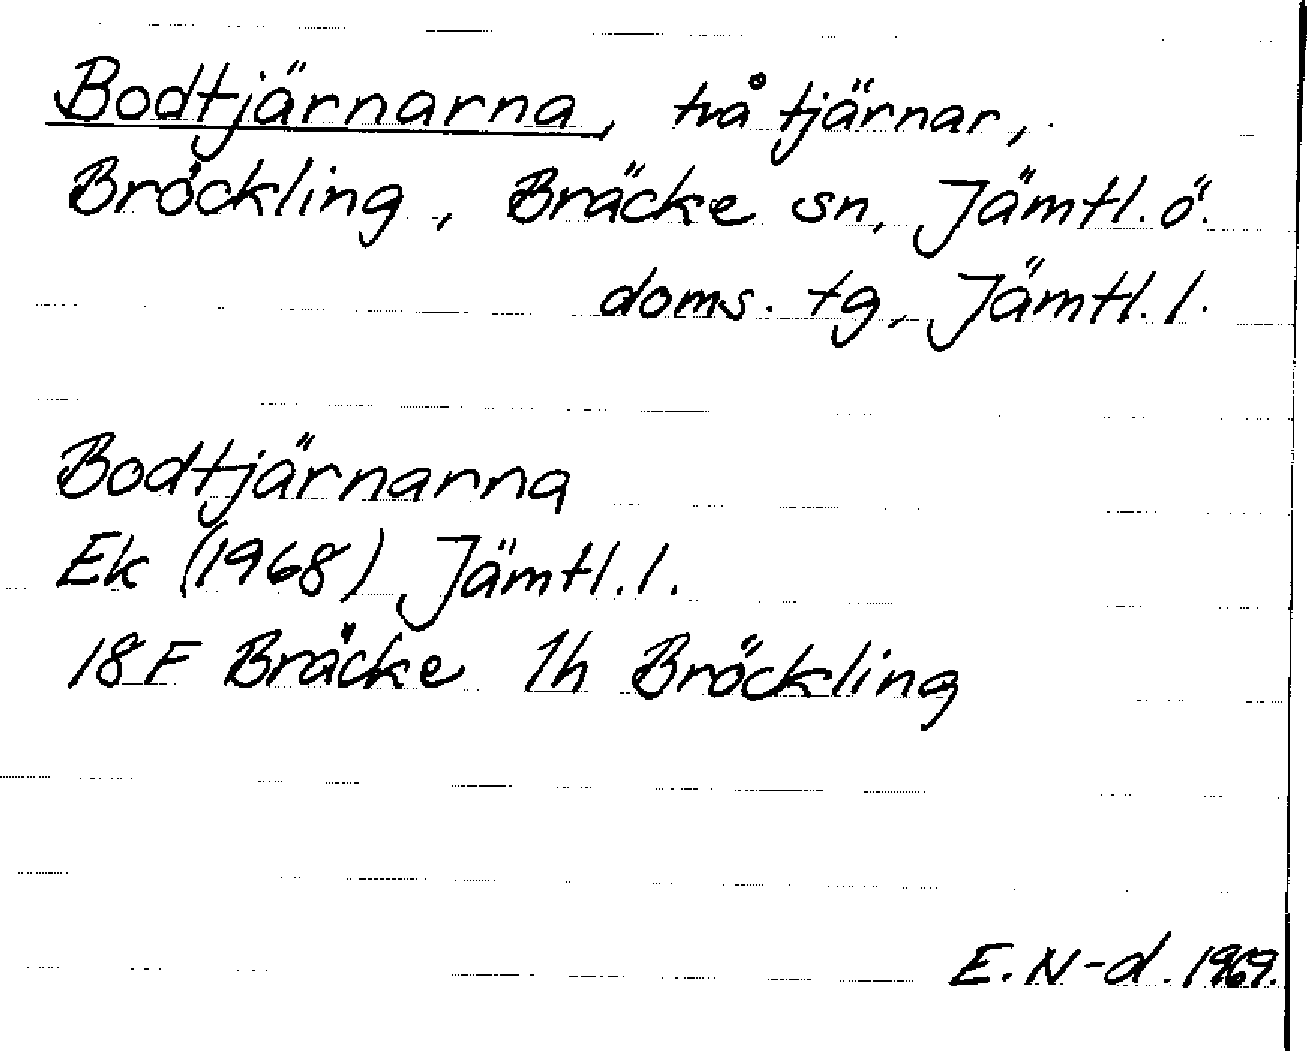 Bodtjärnarna, två tjärnar,
Bröckling, Bräcke sn, Jämtl. ö.
doms. tg, Jämtl. l.
Bodtjärnarna
Ek (1968) Jämtl. l.
18F Bräcke 1h Bröckling
E. N-d. 1969.